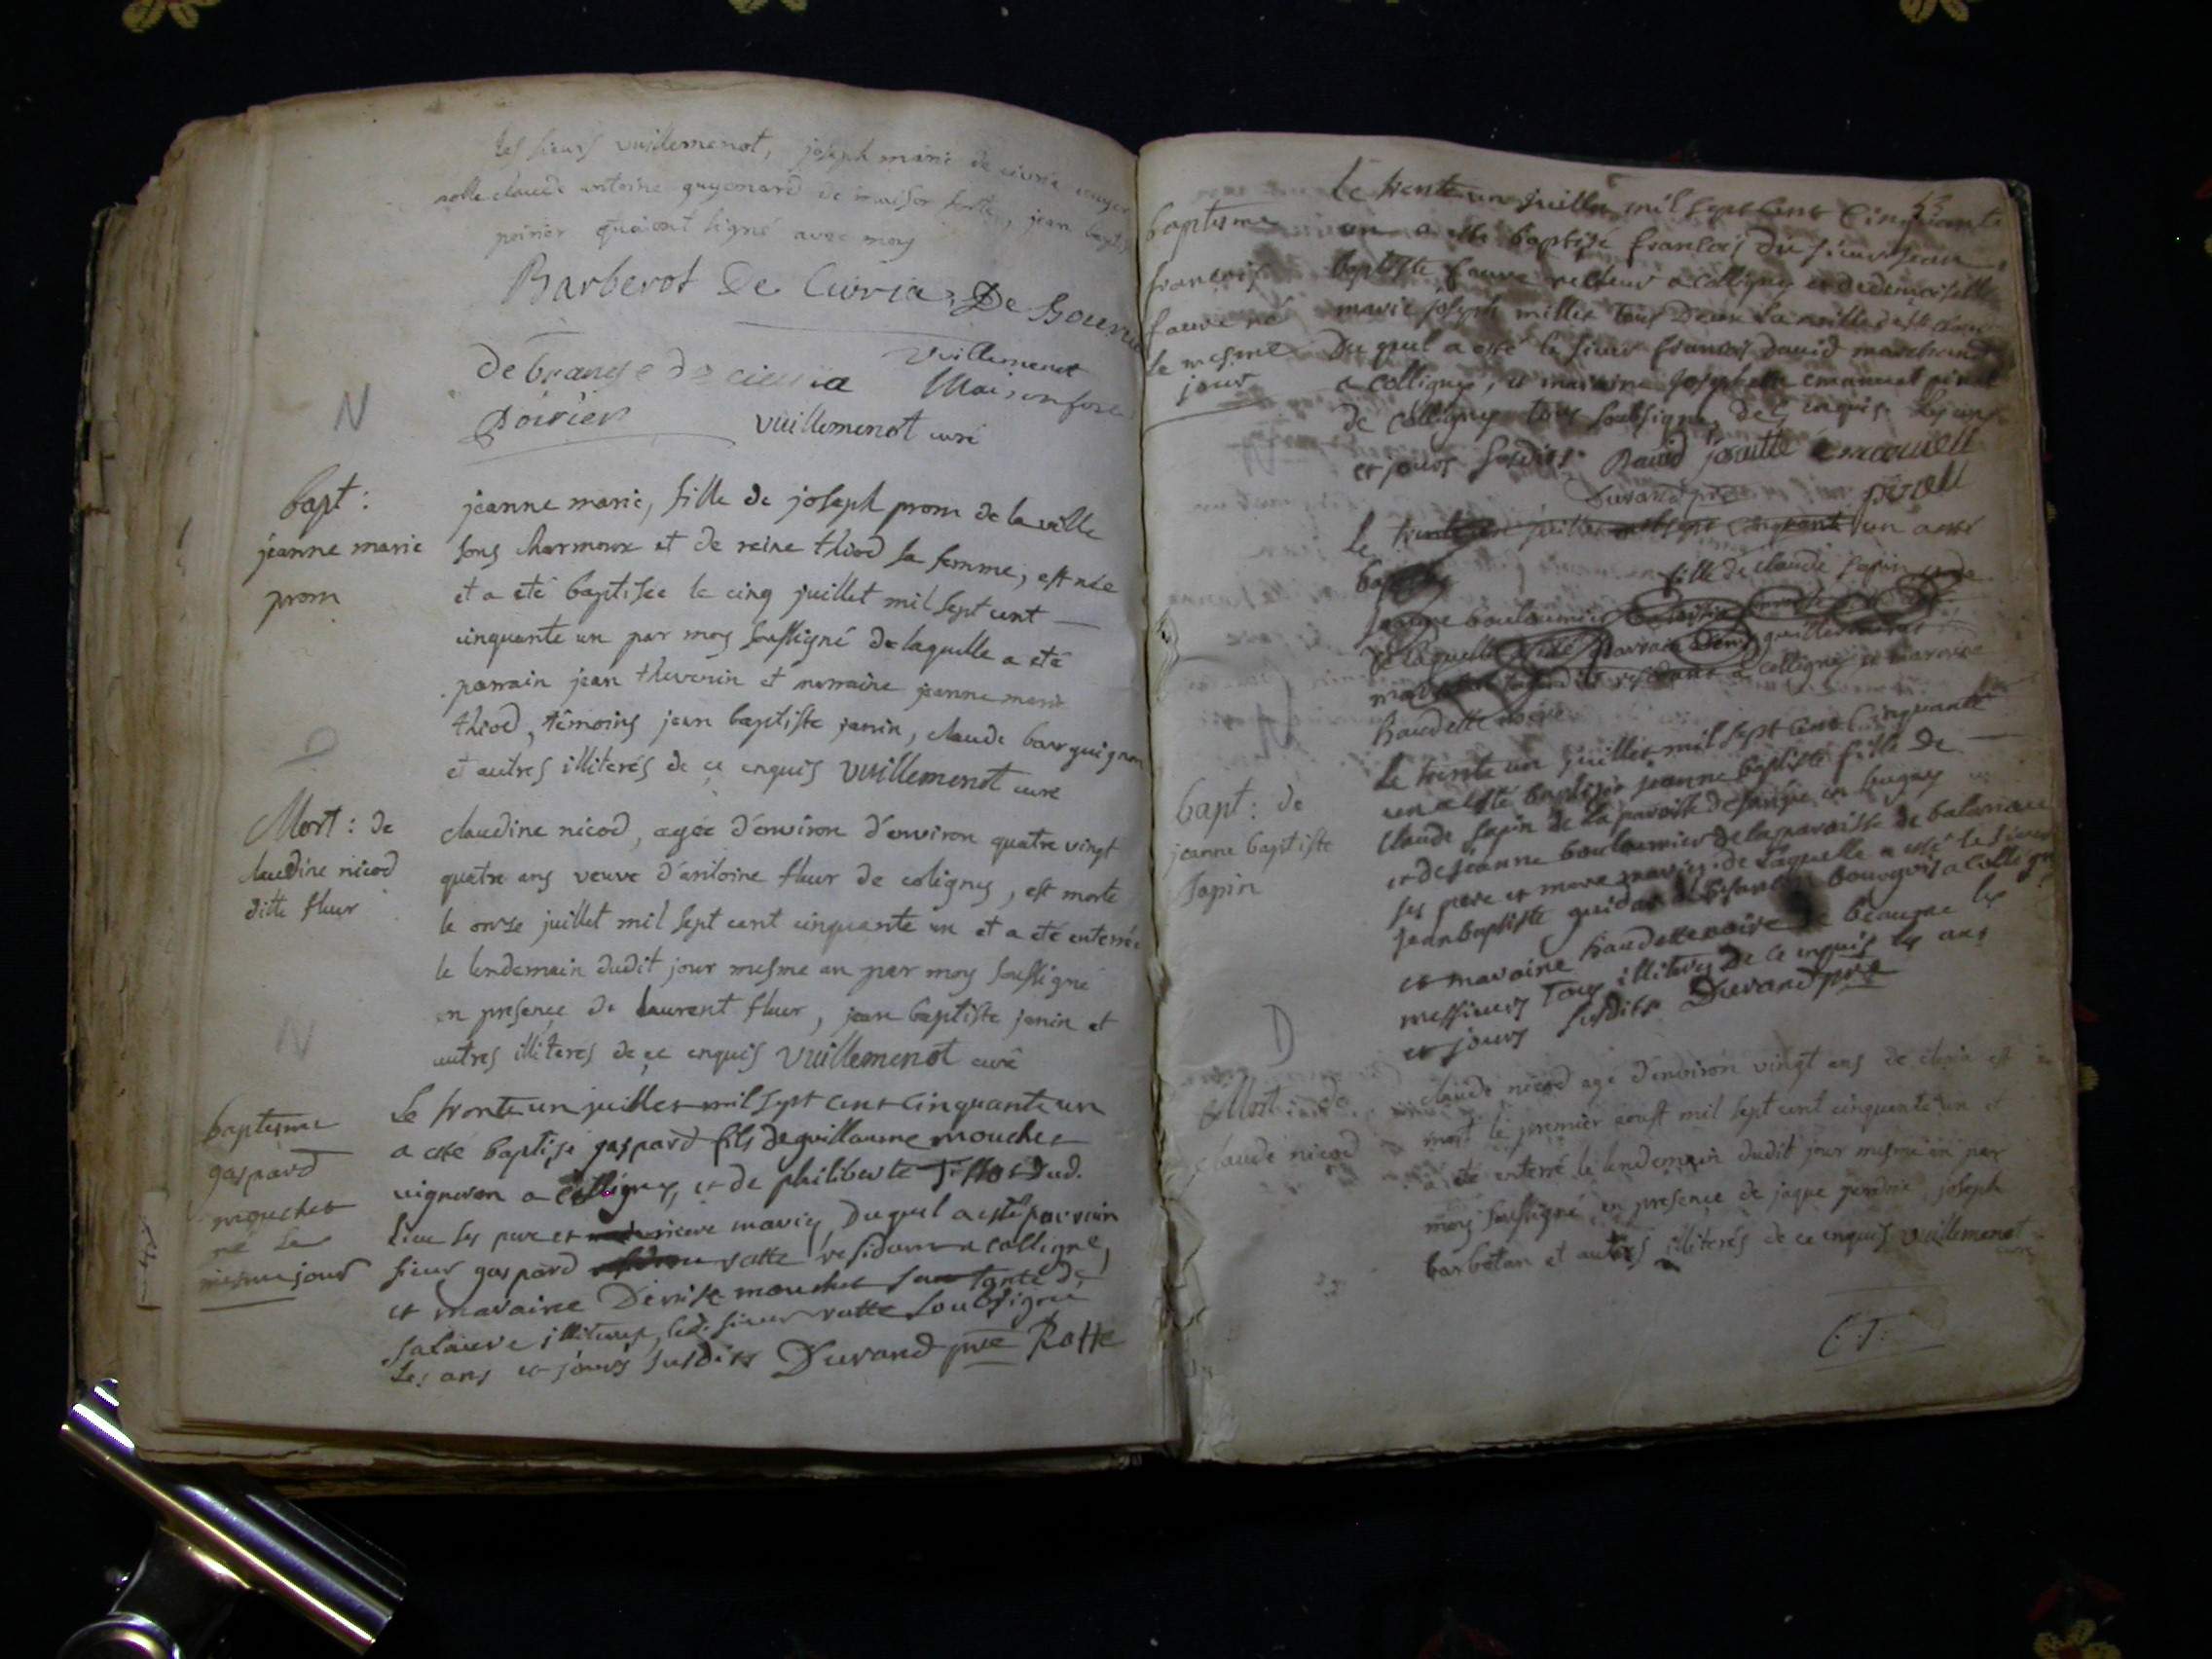 les sieurs vuillemenot, joseph marie de civria ecuyer
noble claude antoine guyemard de maison forte, jean baptiste
poirier qui ont signé avec moy
Barberot De Civria, De Bourn
De brange de civria vuillemenot
Maisonforte
Poirier vuillemenot curé
N
bapt:
jeanne marie
prom
jeanne marie, fille de joseph prom de la ville
sous charmoux et de reine thiod sa femme, est née
et a eté baptisée le cinq juillet mil sept cent
cinquante un par moy soussigné de laquelle a eté
parrain jean thevenin et marraine jeanne marie
thiod, témoins jean baptiste janin, claude bourguignon
et autres illiterés de ce enquis vuillemenot curé
D
Mort: de
claudine nicod
ditte fleur
claudine nicod, agée d'environ d'environ quatre vingt
quatre ans veuve d'antoine fleur de coligny, est morte
le onze juillet mil sept cent cinquante un et a eté enterrée
le lendemain dudit jour mesme an par moy soussigné
en presence de laurent fleur, jean baptiste janin et
autres illiteres de ce enquis vuillemenot curé
N
baptesme
gaspard
mouchet
né le
mesme jour
Le trente un juillet mil sept cent cinquante un
a esté baptisé gaspard fils de guillaume mouchet
vigneron a colligny, et de philiberte Tissot dud.
lieu ses pere et mere mariés, duquel a esté parrain
sieur gaspard ratte residant a colligny,
et maraine Denise mouchet sa tante de
salavre illiterée, led. sieur ratte soubsigné
les ans et jours susdits Durand ptre Ratte
53
baptesme
francois
fauvre né
le mesme
jour
Le trente un juillet mil sept cent cinquante
un a esté baptisé francois du sieur jean
baptiste fauvre recteur a colligny et de demoiselle
marie joseph millet tous deux
Duquel a esté le sieur francois david marchand
a colligny, et maraine josephette emanuel pirat
de colligny tous soubsignés de ce enquis les ans
et jours susdits David josette emanuell
Durand ptre piratt
Le trente un juillet mil sept cinquante un a esté
fille de claude sapin et de
jeanne bouloumier
de laquelle a esté parrain
residant a colligny et maraine
claudette noire
bapt: de
jeanne baptiste
sapin
Le trente un juillet mil sept cent cinquante
un a esté baptisée jeanne baptiste fille de
claude sapin de la paroisse de
et de jeanne bouloumier de la paroisse de
ses pere et mere mariés, de laquelle a esté le sieur
jean baptiste guidat bourgeois a colligny
et maraine claudette noire de beaupre les
messieurs tous illiterés de ce enquis les ans
et jours susdits Durand ptre
D
Mort de
claude nicod
claude nicod agé d'environ vingt ans de est
mort le premier aoust mil sept cent cinquante un et
a été enterré le lendemain dudit jour mesme an par
moy soussigné en presence de jaque perdrix, joseph
barbetan et autres illiterés de ce enquis vuillemenot
curé